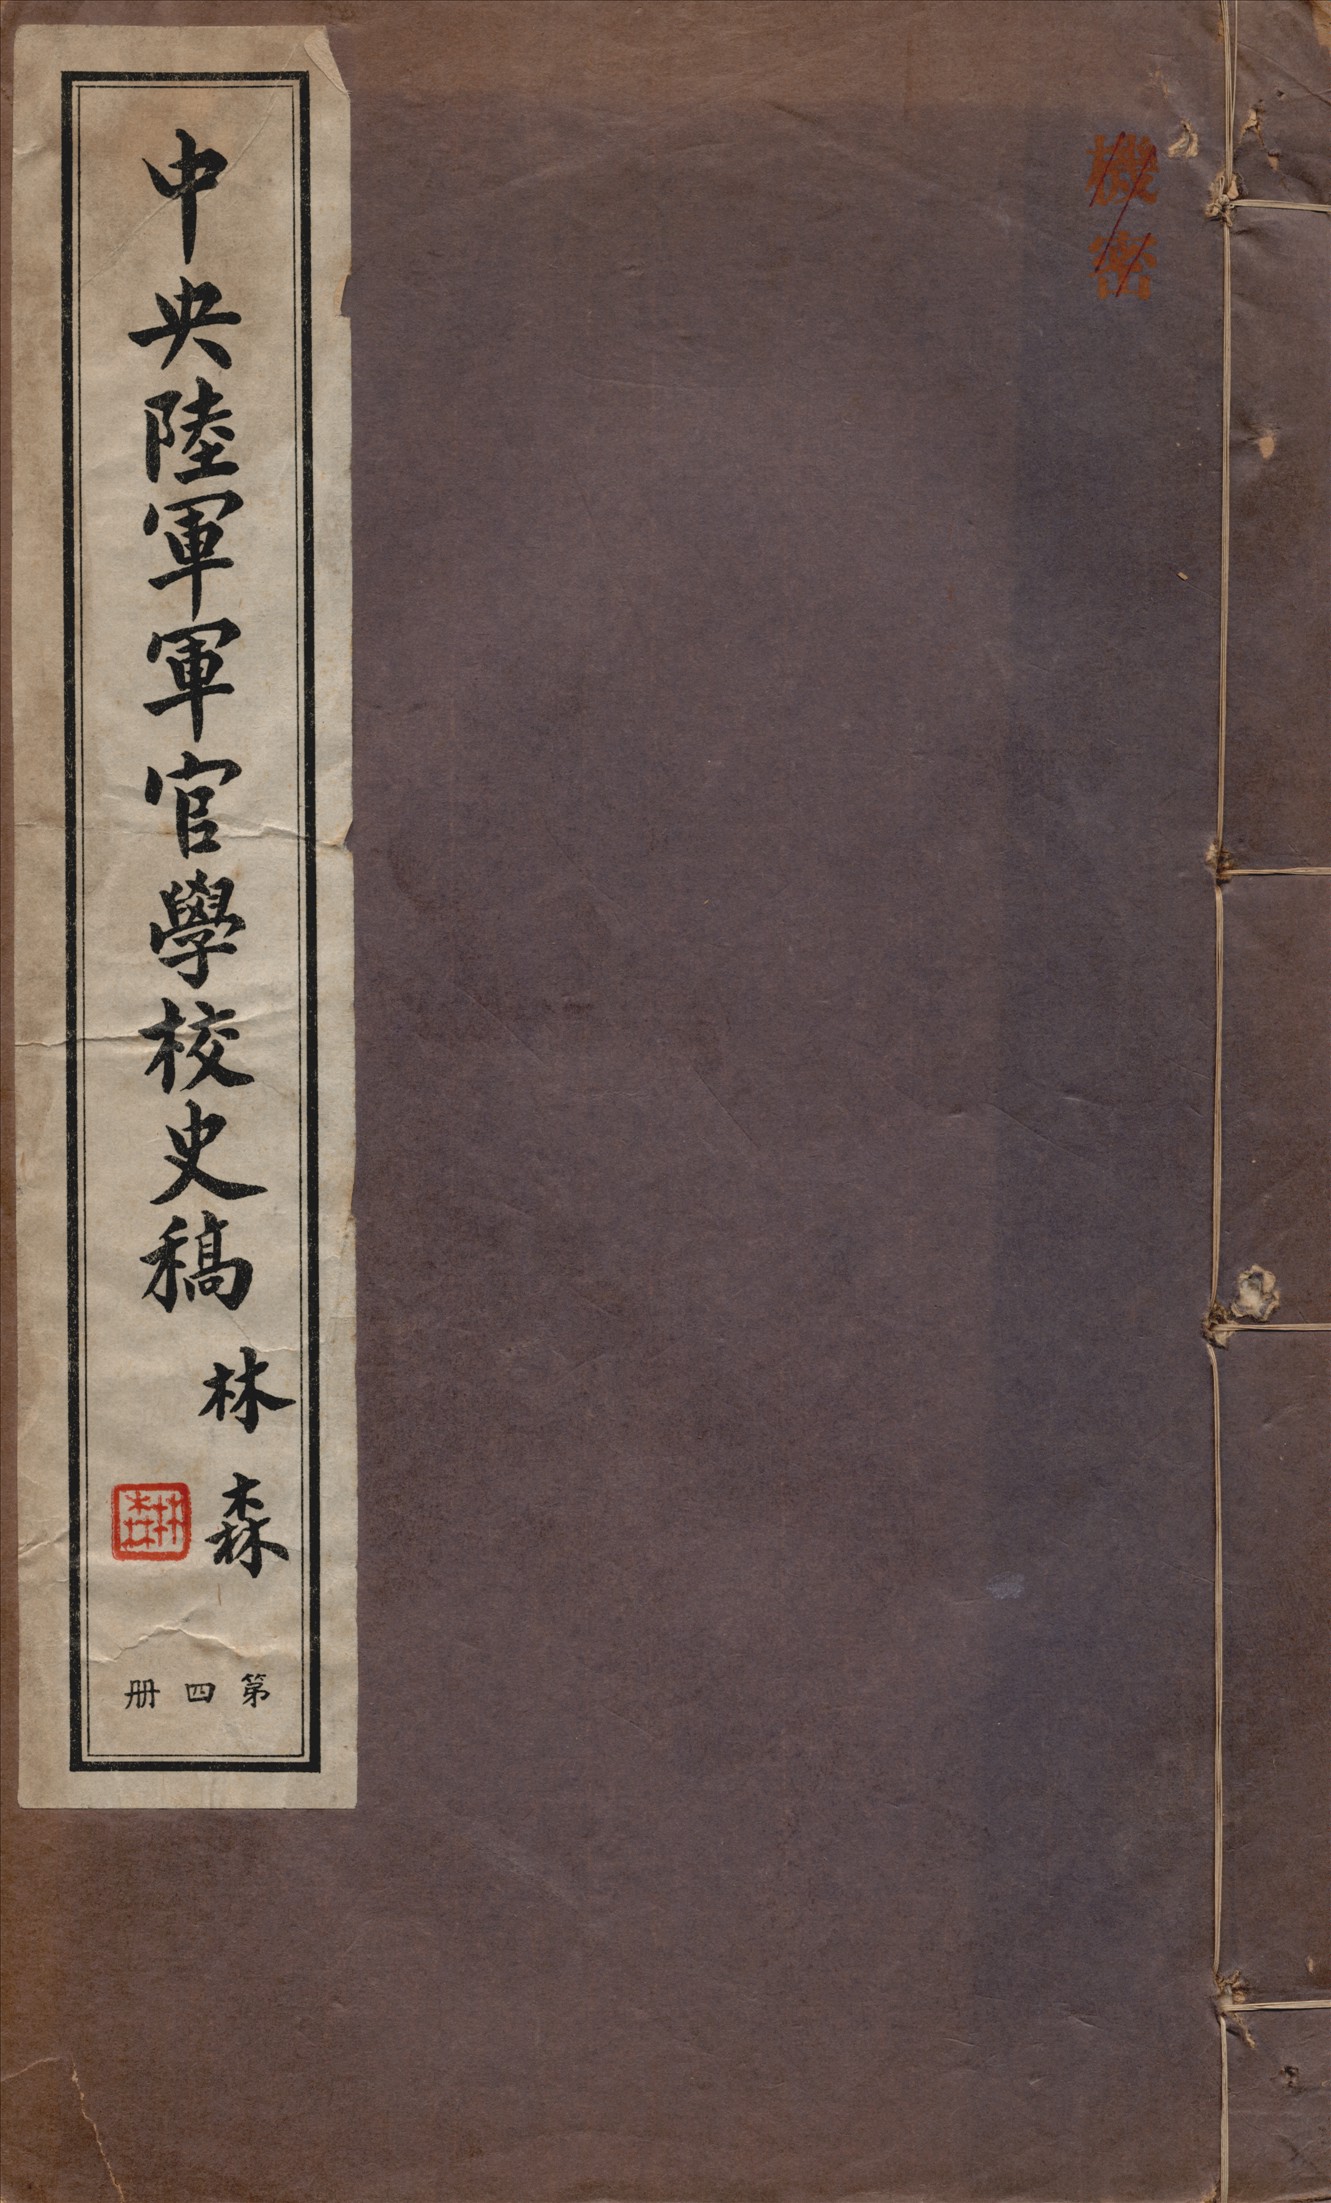 機密
中央陸軍軍官學校史稿
林森
林森
第四册